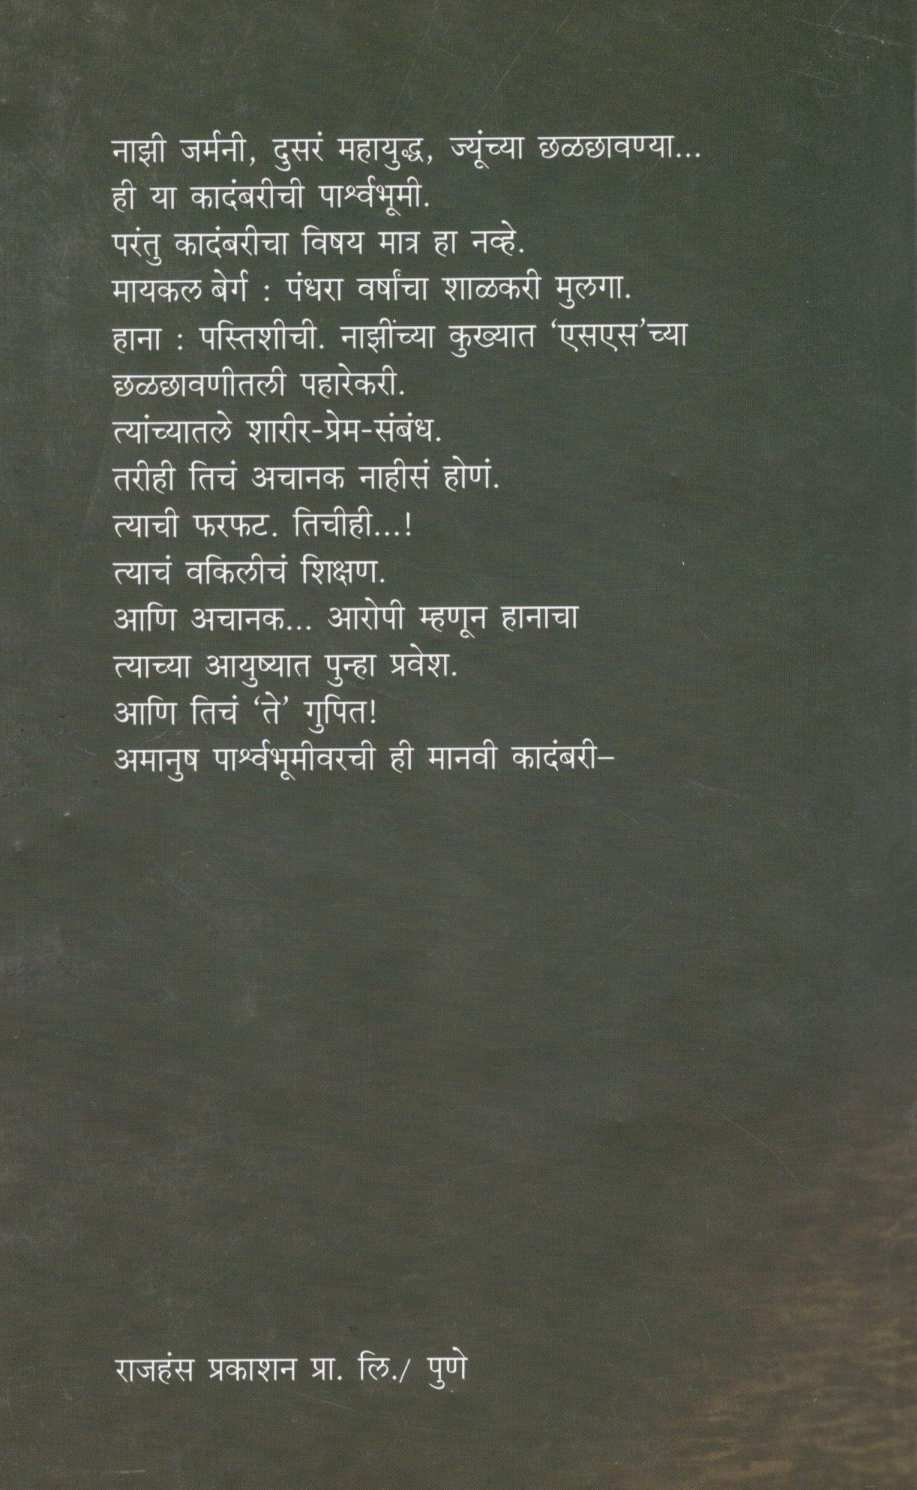 नाझी जर्मनी, दुसरं महायुद्ध, ज्यूंच्या छळछावण्या...
ही या कादंबरीची पार्श्वभूमी.
परंतु कादंबरीचा विषय मात्र हा नव्हे.
मायकल बेर्ग : पंधरा वर्षांचा शाळकरी मुलगा.
हाना : पस्तिशीची. नाझींच्या कुख्यात ‘एसएस’च्या
छळछावणीतली पहारेकरी.
त्यांच्यातले शारीर-प्रेम-संबंध.
तरीही तिचं अचानक नाहीसं होणं.
त्याची फरफट. तिचीही...!
त्याचं वकिलीचं शिक्षण.
आणि अचानक... आरोपी म्हणून हानाचा
त्याच्या आयुष्यात पुन्हा प्रवेश.
आणि तिचं ‘ते’ गुपित!
अमानुष पार्श्वभूमीवरची ही मानवी कादंबरी–
राजहंस प्रकाशन प्रा. लि./ पुणे